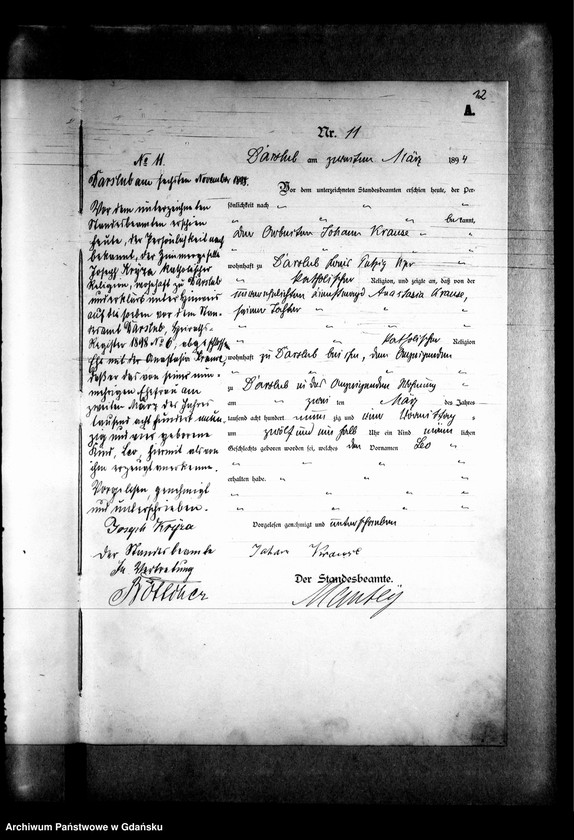 12
A.
Nr. 11
Darslub am zweiten März 1894
Vor dem unterzeichneten Standesbeamten erschien heute, der Per-
sönlichkeit nach
bekannt,
der Arbeiter Johann Krause
wohnhaft zu Darslub Kreis Putzig Wpr
katholischer Religion, und zeigte an, daß von der
unverehelichten Dienstmagd Anastasia Krause,
seiner Tochter
katholischer Religion
wohnhaft zu Darslub bei ihm, dem Anzeigenden
zu Darslub in des Anzeigenden Wohnung
am zweiten März des Jahres
tausend acht hundert neunzig und vier Vormittag s
um zwölf und ein halb Uhr ein Kind männ lichen
Geschlechts geboren worden sei, welches den Vornamen Leo
erhalten habe.
Vorgelesen genehmigt und unterschrieben
Johann Krause
Der Standesbeamte.
No 11.
Darslub am sechsten November 1898.
Vor dem unterzeichneten
Standesbeamten erschien
heute, der Persönlichkeit nach
bekannt, der Zimmergeselle
Joseph Kryza katholischer
Religion, wohnhaft zu Darslub
und erklärt unter Hinweis
auf die selben vor dem Stan-
desamt Darslub, Heirats-
Register 1898 No 6, abgeschlossene
Ehe mit der Anastasia Krause,
daß er das von seiner nun-
mehrigen Ehefrau am
zweiten März des Jahres
tausend acht hundert neun-
zig und vier geborene
Kind, Leo, hiermit als von
ihm erzeugt anerkenne.
Vorgelesen, genehmigt
und unterschrieben.
Joseph Kryza
Der Standesbeamte
In Vertretung
Archiwum Państwowe w Gdańsku